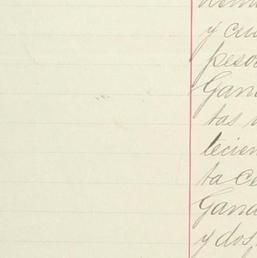 y cu
peso
Gana
tas
tecien
ta ce
Gana
y dos